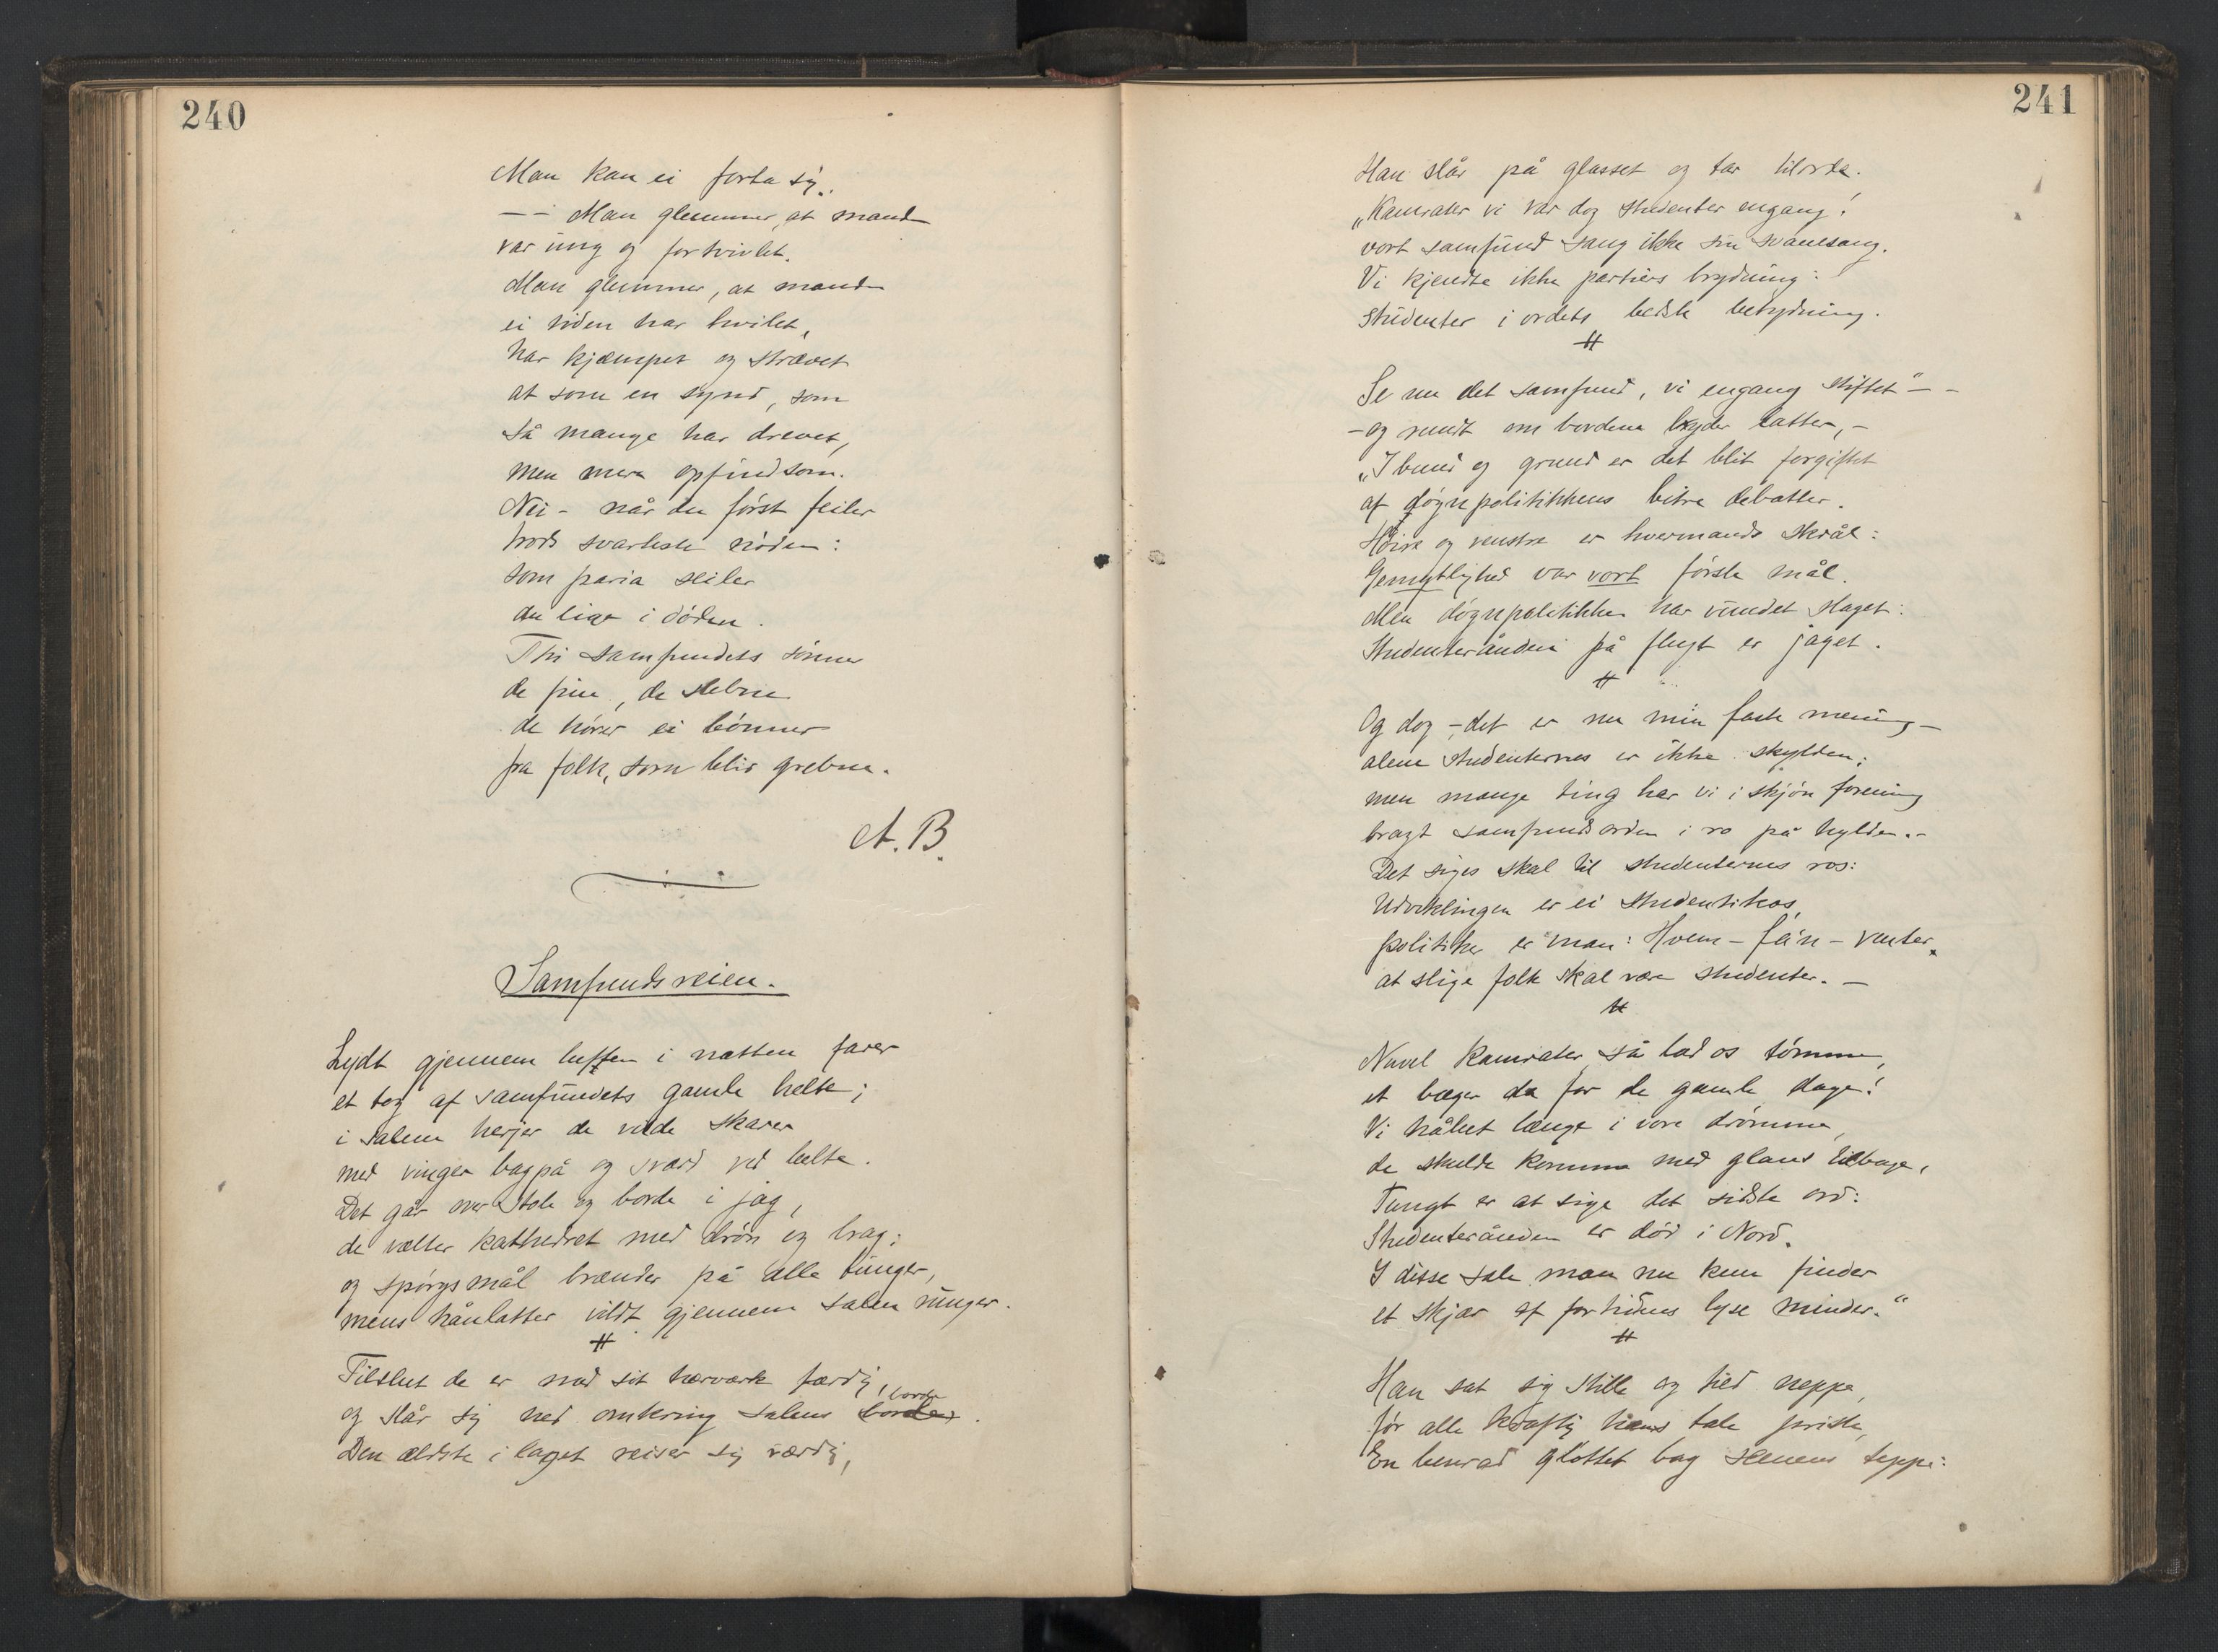 240
Man kan ei forta sig.
— – Man glemmer, at manden
var ung og fortvivlet.
Man glemmer, at manden
ei siden har hvilet,
har kjæmpet og strævet
at sone en synd, som
så mange har drevet,
men mere opfindsom.
Nei – når du först feiler
trods svarteste nöden:
som paria seiler
du lige i döden.
Thi samfundets sönner
de fine, de slebne
de hörer ei bönner
fra folk, som blir grebne.
A. B.
Samfundsreien.
Lydt gjennem luften i natten farer
et tog af samfundets gamle helte;
i salene herjer de vilde skarer
med vinger bagpå og sværd ved belte.
Det går over stole og borde i jag,
de vælter kathedret med drön og brag;
og spörgsmål brænder på alle tunger,
mens hånlatter vildt gjennem salen runger.
#
Tilslut de er med sit hærværk færdig,
borde
og slår sig ned omkring salens border.
Den ældste i laget reiser sig værdig,
241
Han slår på glasset og tar tilorde.
„Kamrater vi var dog studenter engang!
vort samfund sang ikke sin svanesang.
Vi kjendte ikke partiers brydning:
studenter i ordets bedste betydning.
#
Se nu det samfund, vi engang stiftet" – –
– og rundt om bordene lyder latter, –
„I bund og grund er det blit forgiftet
af døgnpolitikkens bitre debatter.
Höire og venstre er hvermands skrål:
Gemytlighed var vort förste mål.
Men dögnpolitikken har vundet slaget:
Studenterånden på flugt er jaget.
#
Og dog, – det er nu min faste mening –
alene studenternes er ikke skylden;
men mange ting har vi i skjön forening
bragt samfundsorden i ro på hylden. –
Det siges skal til studenternes ros:
Udviklingen er ei studentikos,
politiker er man: Hvem – fa'n – venter,
at slige folk skal være studenter. —
#
Nuvel kamrater, så lad os tömme,
et bæger da for de gamle dage!
Vi håbet længe i vore drömme,
de skulde komme med glans tilbage,
Tungt er at sige det sidste ord:
Studenterånden er död i Nord.
I disse sale man nu kun finder
et skjær af fortidens lyse minder."
#
Han sat sig stille og tied neppe,
för alle kraftig hans tale priste,
En benrad glottet bag scenens teppe: